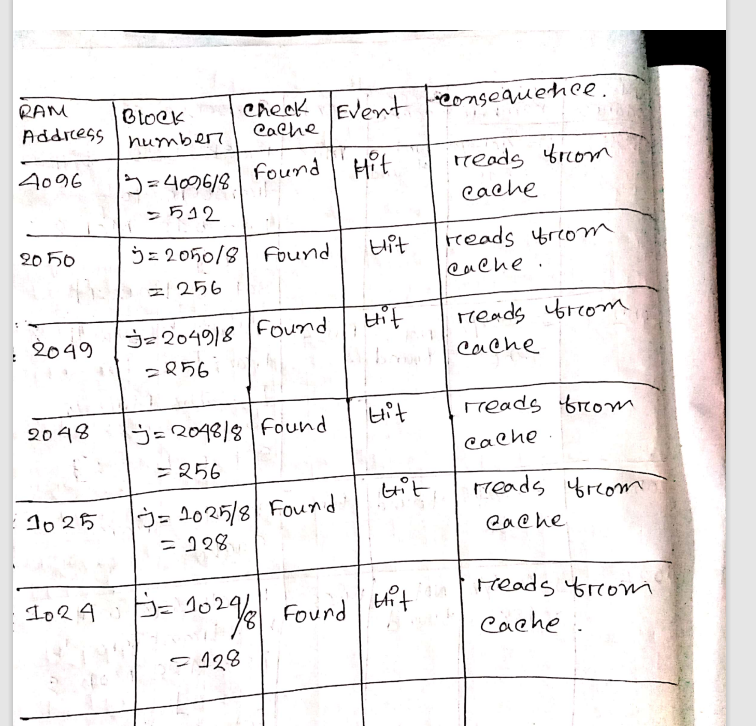 RAM Address | Block number | Check Cache | Event | consequence.
4096 | j = 4096/8 = 512 | Found | Hit | reads from cache
2050 | j = 2050/8 = 256 | Found | Hit | reads from cache.
2049 | j = 2049/8 = 256 | Found | Hit | reads from cache
2048 | j = 2048/8 = 256 | Found | Hit | reads from cache.
1025 | j = 1025/8 = 128 | Found | Hit | reads from cache
1024 | j = 1024/8 = 128 | Found | Hit | reads from cache.